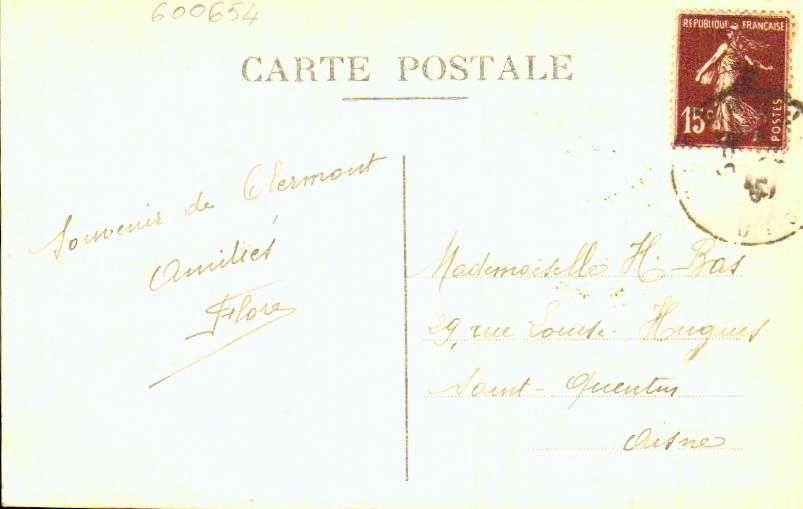 600654
CARTE POSTALE
RÉPUBLIQUE FRANÇAISE
15c
POSTES
Souvenir de Clermont
Amitiés
Flore
Mademoiselle H. Bas
29, rue Louise Hugues
Saint-Quentin
Aisne